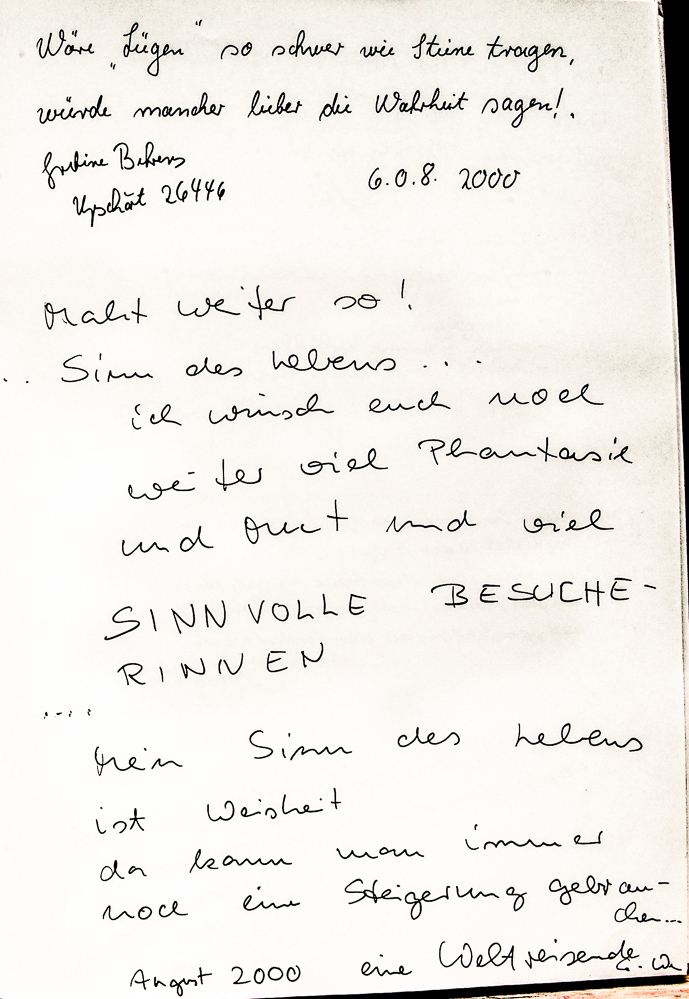 Wäre „Lügen" so schwer wie Steine tragen,
würde mancher lieber die Wahrheit sagen!.
Behrens
Upschört 26446 6.0.8. 2000
Macht weiter so!
.. Sinn des Lebens ...
ich wünsch euch noch
weiter viel Phantasie
und Mut und viel
SINNVOLLE BESUCHE-
RINNEN
....
Mein Sinn des Lebens
ist Weisheit
da kann man immer
noch eine Steigerung gebrau-
chen...
August 2000 eine Weltreisende